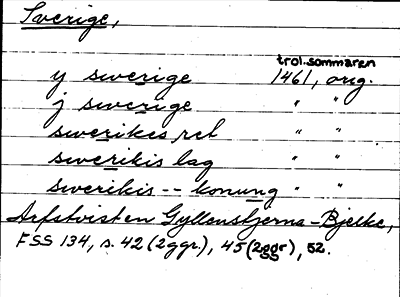 Sverige,
trol. sommaren
y swerige 1461, orig.
j swerige " "
swerikes ret " "
swerikis lag " "
swerikis -- konung " "
Arfstvisten Gyllenstjerna - Bjelke,
FSS 134, s. 42 (2ggr.), 45 (2ggr), 52.